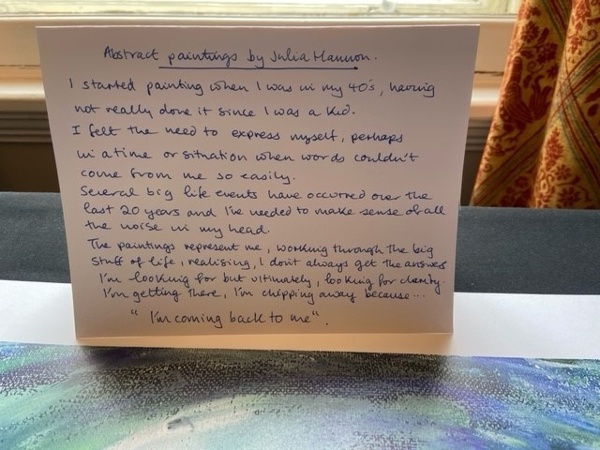 Abstract paintings by Julia Hannon.
I started painting when I was in my 40's, having
not really done it since I was a kid.
I felt the need to express myself, perhaps
in a time or situation when words couldn't
come from me so easily.
Several big life events have occurred over the
last 20 years and I've needed to make sense of all
the noise in my head.
The paintings represent me, working through the big
stuff of life, realising, I don't always get the answer
I'm looking for but ultimately, looking for clarity.
I'm getting there, I'm chipping away because...
"I'm coming back to me".